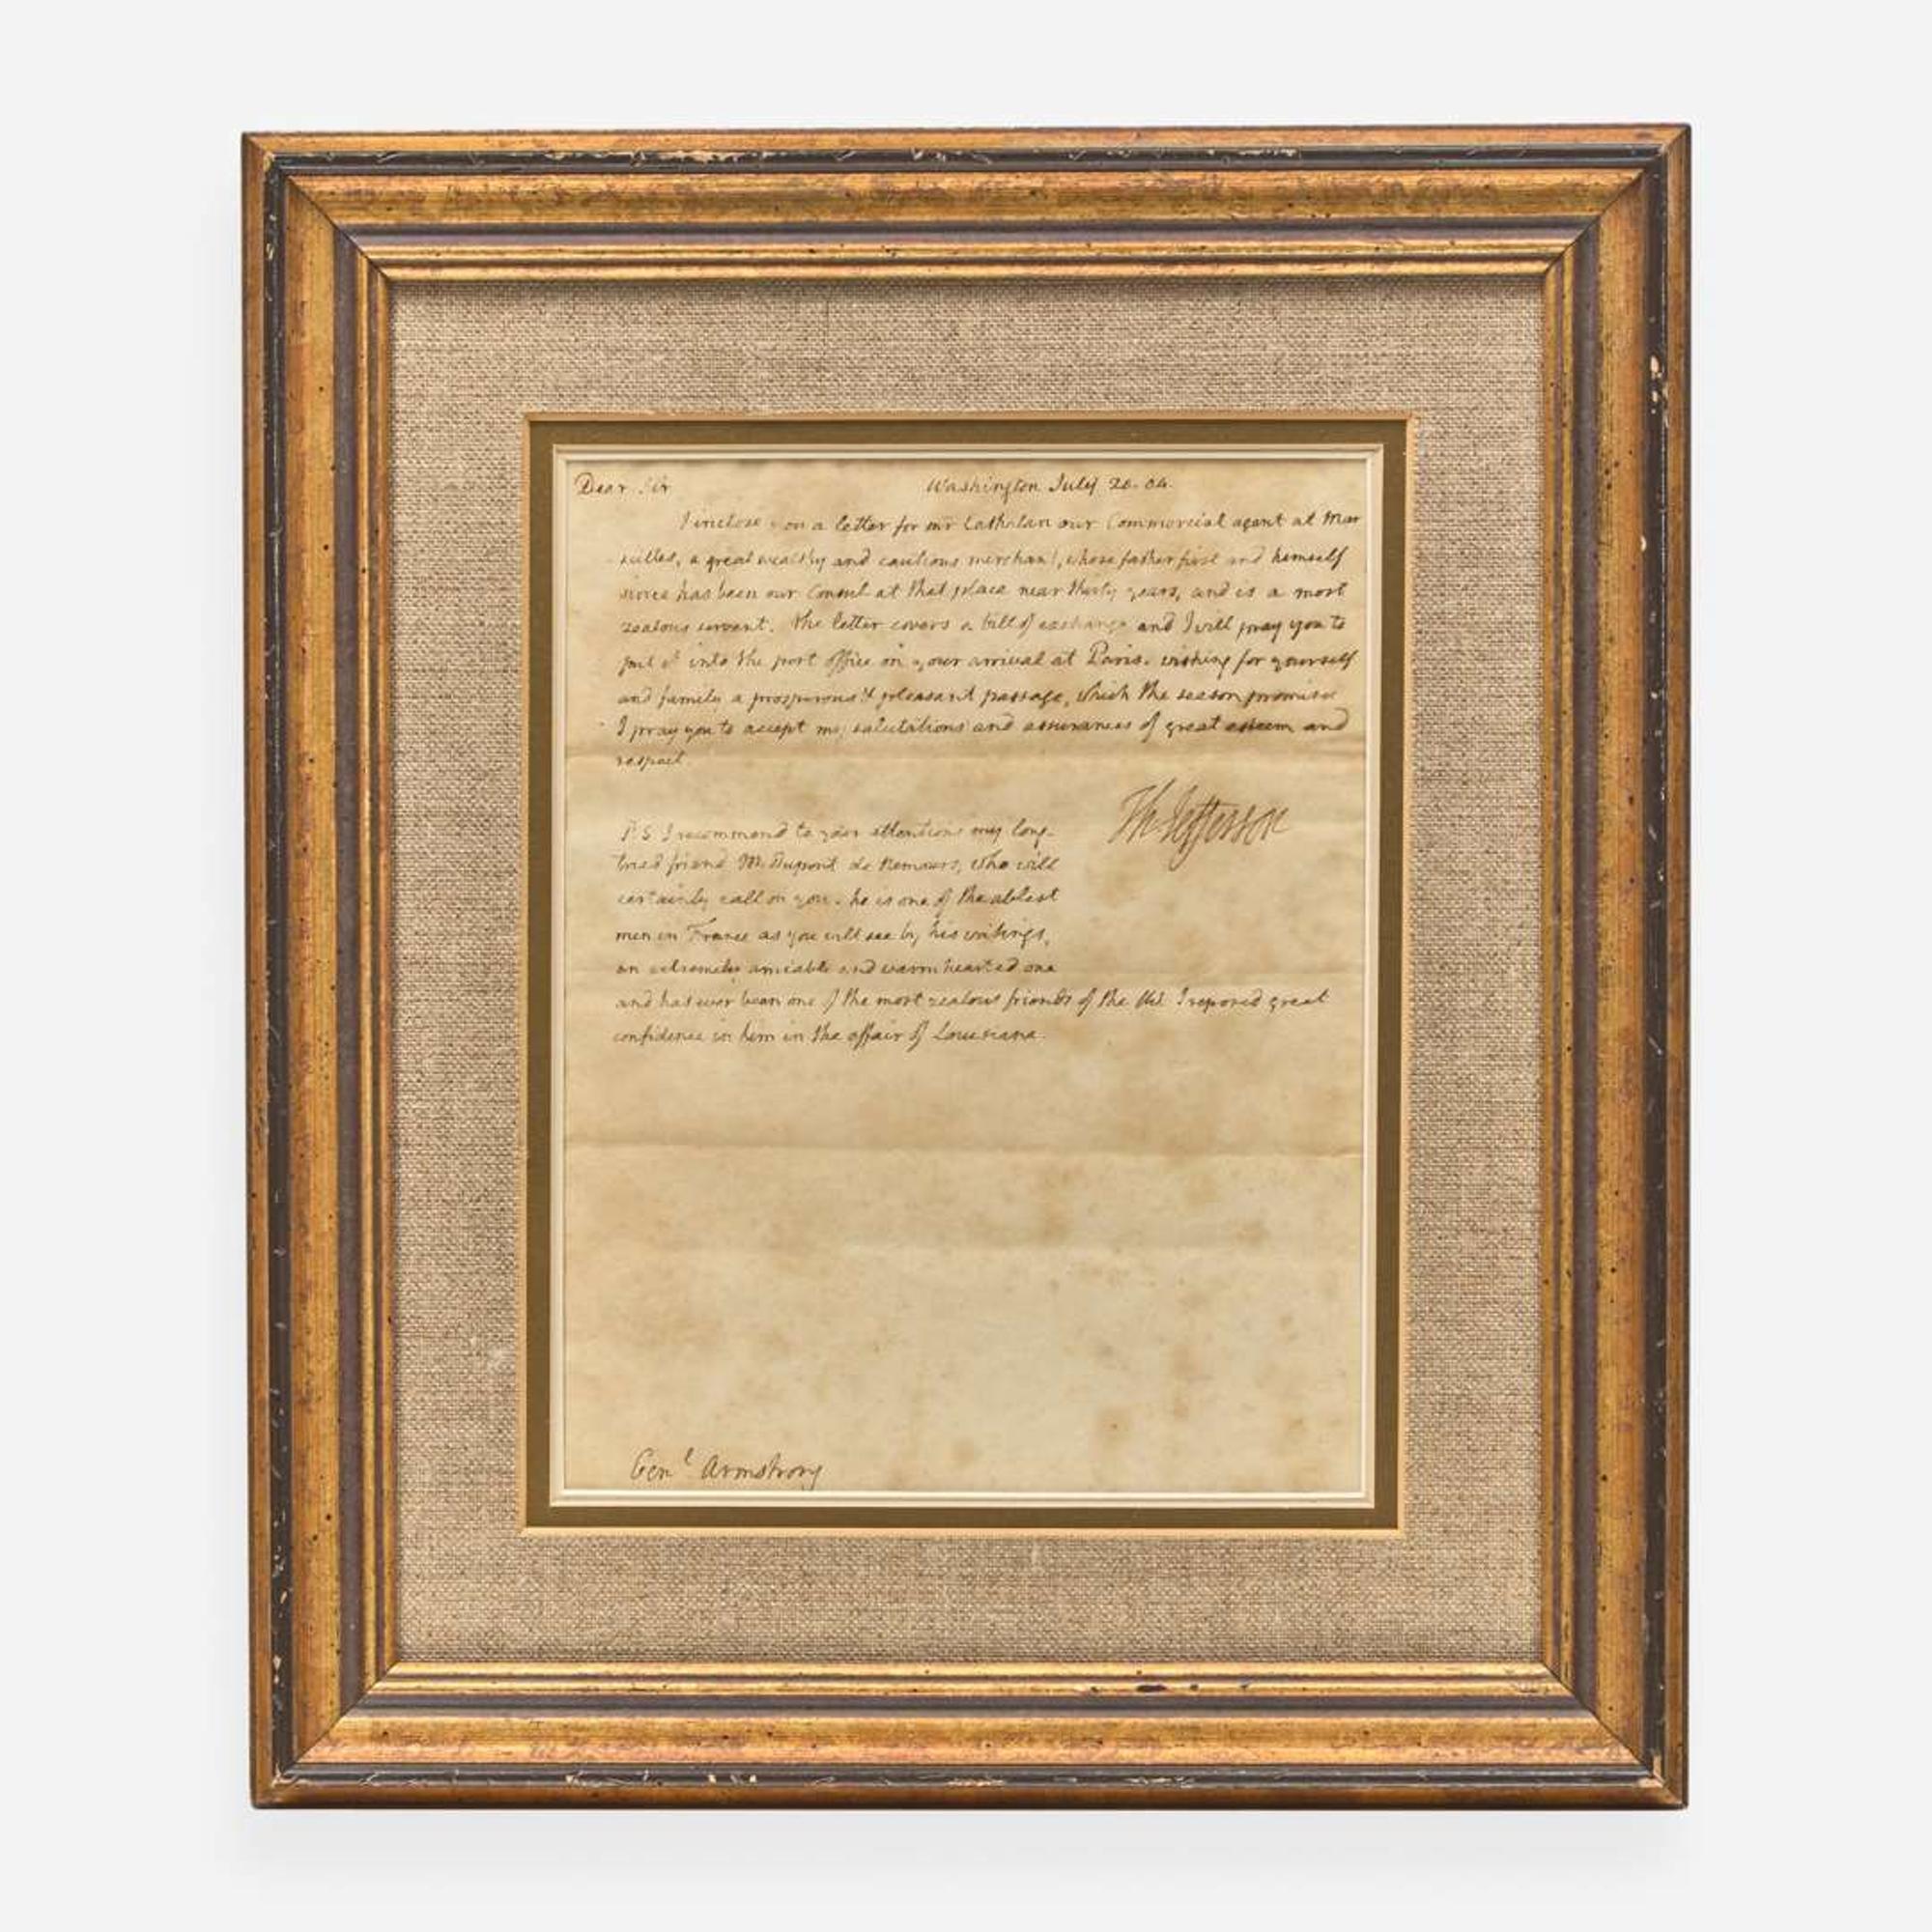 Dear Sir Washington July 20. 04.
I inclose you a letter for mr Cathalan our Commercial agent at Mar
seilles, a great wealthy and cautious merchant, whose father first and himself
since has been our Consul at that place near thirty years, and is a most
zealous servant. the letter covers a bill of exchange and I will pray you to
put it into the post office on your arrival at Paris. wishing for yourself
and family a prosperous & pleasant passage, which the season promises
I pray you to accept my salutations and assurances of great esteem and
respect
Th: Jefferson
P.S. I recommend to your attentions my long-
tried friend M. Dupont de Nemours, who will
certainly call on you. he is one of the ablest
men in France as you will see by his writings,
an extremely amiable and warm hearted one
and has ever been one of the most zealous friends of the US. I reposed great
confidence in him in the affair of Louisiana.
Genl Armstrong